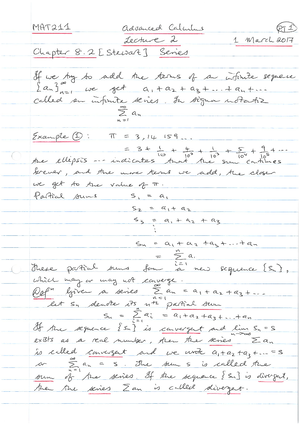 MAT211 Advanced Calculus pg 1
Lecture 2 1 March 2017
Chapter 8.2 [Stewart] Series
If we try to add the terms of an infinite sequence
{aₙ}ₙ₌₁^∞ we get a₁ + a₂ + a₃ + ... + aₙ + ...
called an infinite series. In sigma notation
∞
Σ aₙ
n=1
Example ①: π = 3,14159...
= 3 + 1/10 + 4/10² + 1/10³ + 5/10⁴ + 9/10⁵ + ...
the ellipsis ... indicates that the sum continues
forever, and the more terms we add, the closer
we get to the value of π.
Partial sums s₁ = a₁
s₂ = a₁ + a₂
s₃ = a₁ + a₂ + a₃
⋮
sₙ = a₁ + a₂ + a₃ + ... + aₙ
= Σᵢ₌₁ⁿ aᵢ
These partial sums form a new sequence {sₙ},
which may or may not converge.
Defⁿ Given a series Σₙ₌₁^∞ aₙ = a₁ + a₂ + a₃ + ...
let sₙ denote its nᵗʰ partial sum
sₙ = Σᵢ₌₁ⁿ aᵢ = a₁ + a₂ + a₃ + ... + aₙ
If the sequence {sₙ} is convergent and lim n→∞ sₙ = s
exists as a real number, then the series Σ aₙ
is called convergent and we write a₁ + a₂ + a₃ + ... = s
or Σₙ₌₁^∞ aₙ = s. The sum s is called the
sum of the series. If the sequence {sₙ} is divergent,
then the series Σ aₙ is called divergent.